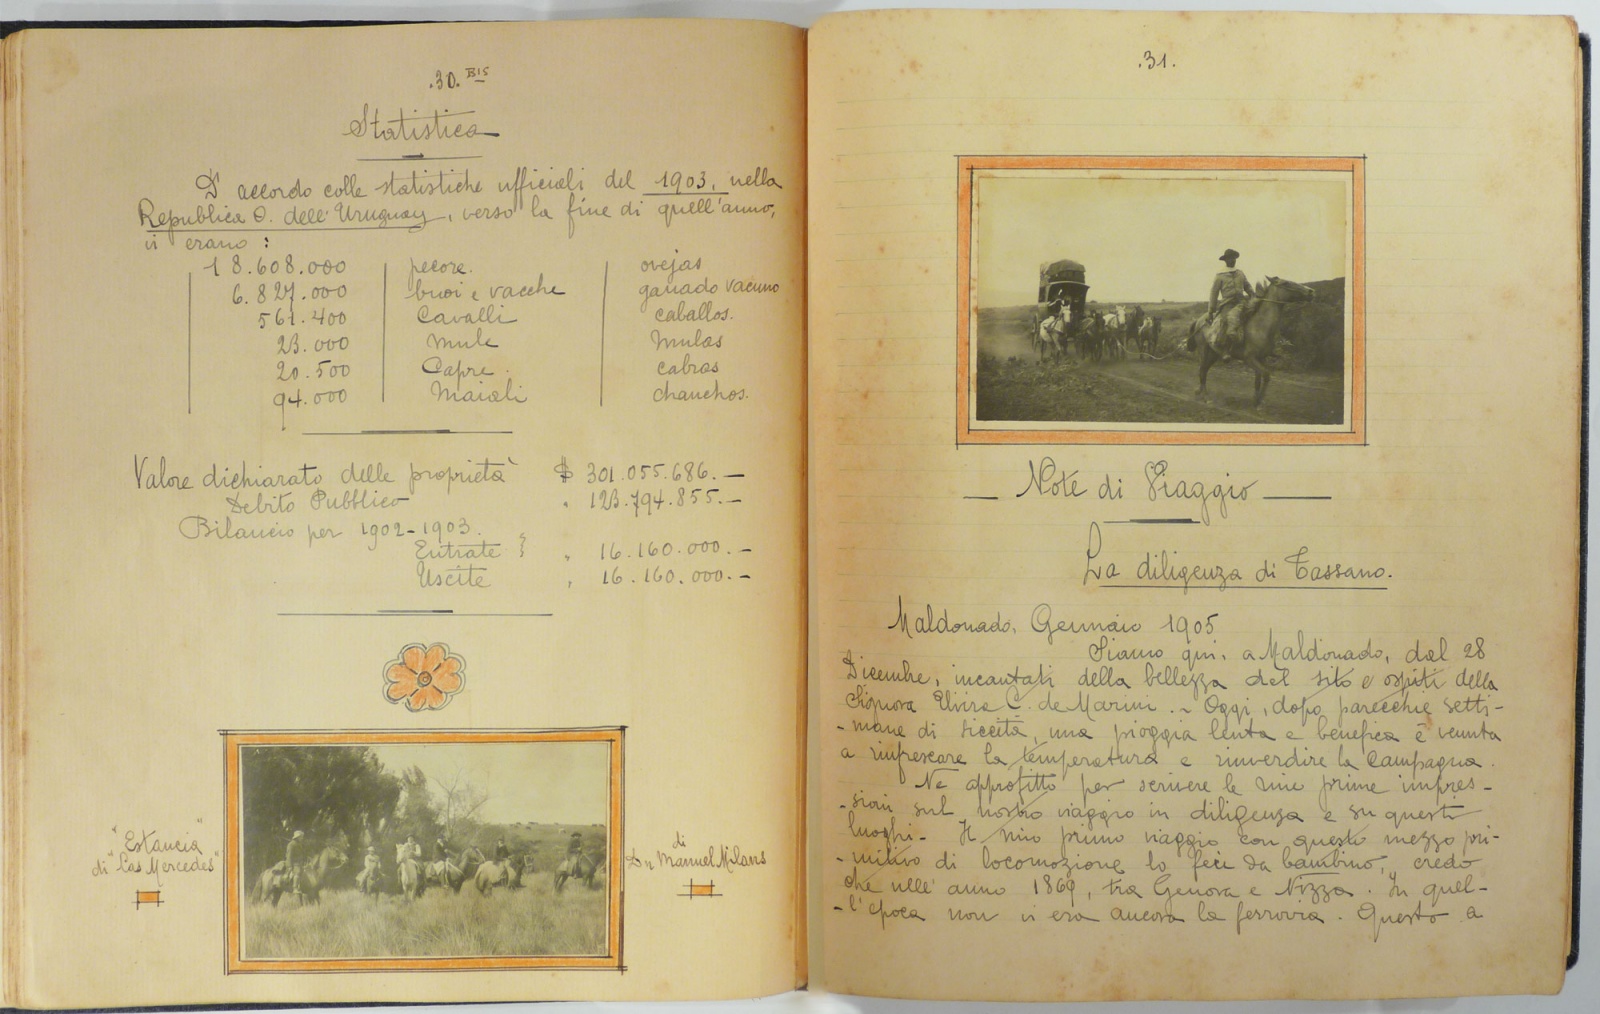 .30. BIS
Statistica
D'accordo colle statistiche ufficiali del 1903, nella
Republica O. dell'Uruguay, verso la fine di quell'anno,
vi erano :
18.608.000 pecore. ovejas
6.827.000 buoi e vacche ganado vacuno
561.400 Cavalli caballos.
23.000 mule mulas
20.500 Capre. cabras
94.000 Maiali chanchos.
Valore dichiarato delle proprietà $ 301.055.686.—
Debito Pubblico " 123.794.855.—
Bilancio per 1902-1903.
Entrate } " 16.160.000.—
Uscite " 16.160.000.—
"Estancia"
di "Las Mercedes"
di
Dn Manuel Milans
.31.
— Note di Viaggio —
La diligenza di Tassano.
Maldonado, Gennaio 1905
Siamo qui, a Maldonado, dal 28
Dicembre, incantati della bellezza del sito e ospiti della
Signora Elvira C. de Marini. ~ Oggi, dopo parecchie setti-
-mane di siccità, una pioggia lenta e benefica è venuta
a rinfrescare la temperatura e rinverdire la campagna.
Ne approfitto per scrivere le mie prime impres-
-sioni sul nostro viaggio in diligenza e su questi
luoghi - Il mio primo viaggio con questo mezzo pri-
-mitivo di locomozione lo feci da bambino, credo
che nell'anno 1869, tra Genova e Nizza. In quel-
-l'epoca non vi era ancora la ferrovia. Questo a